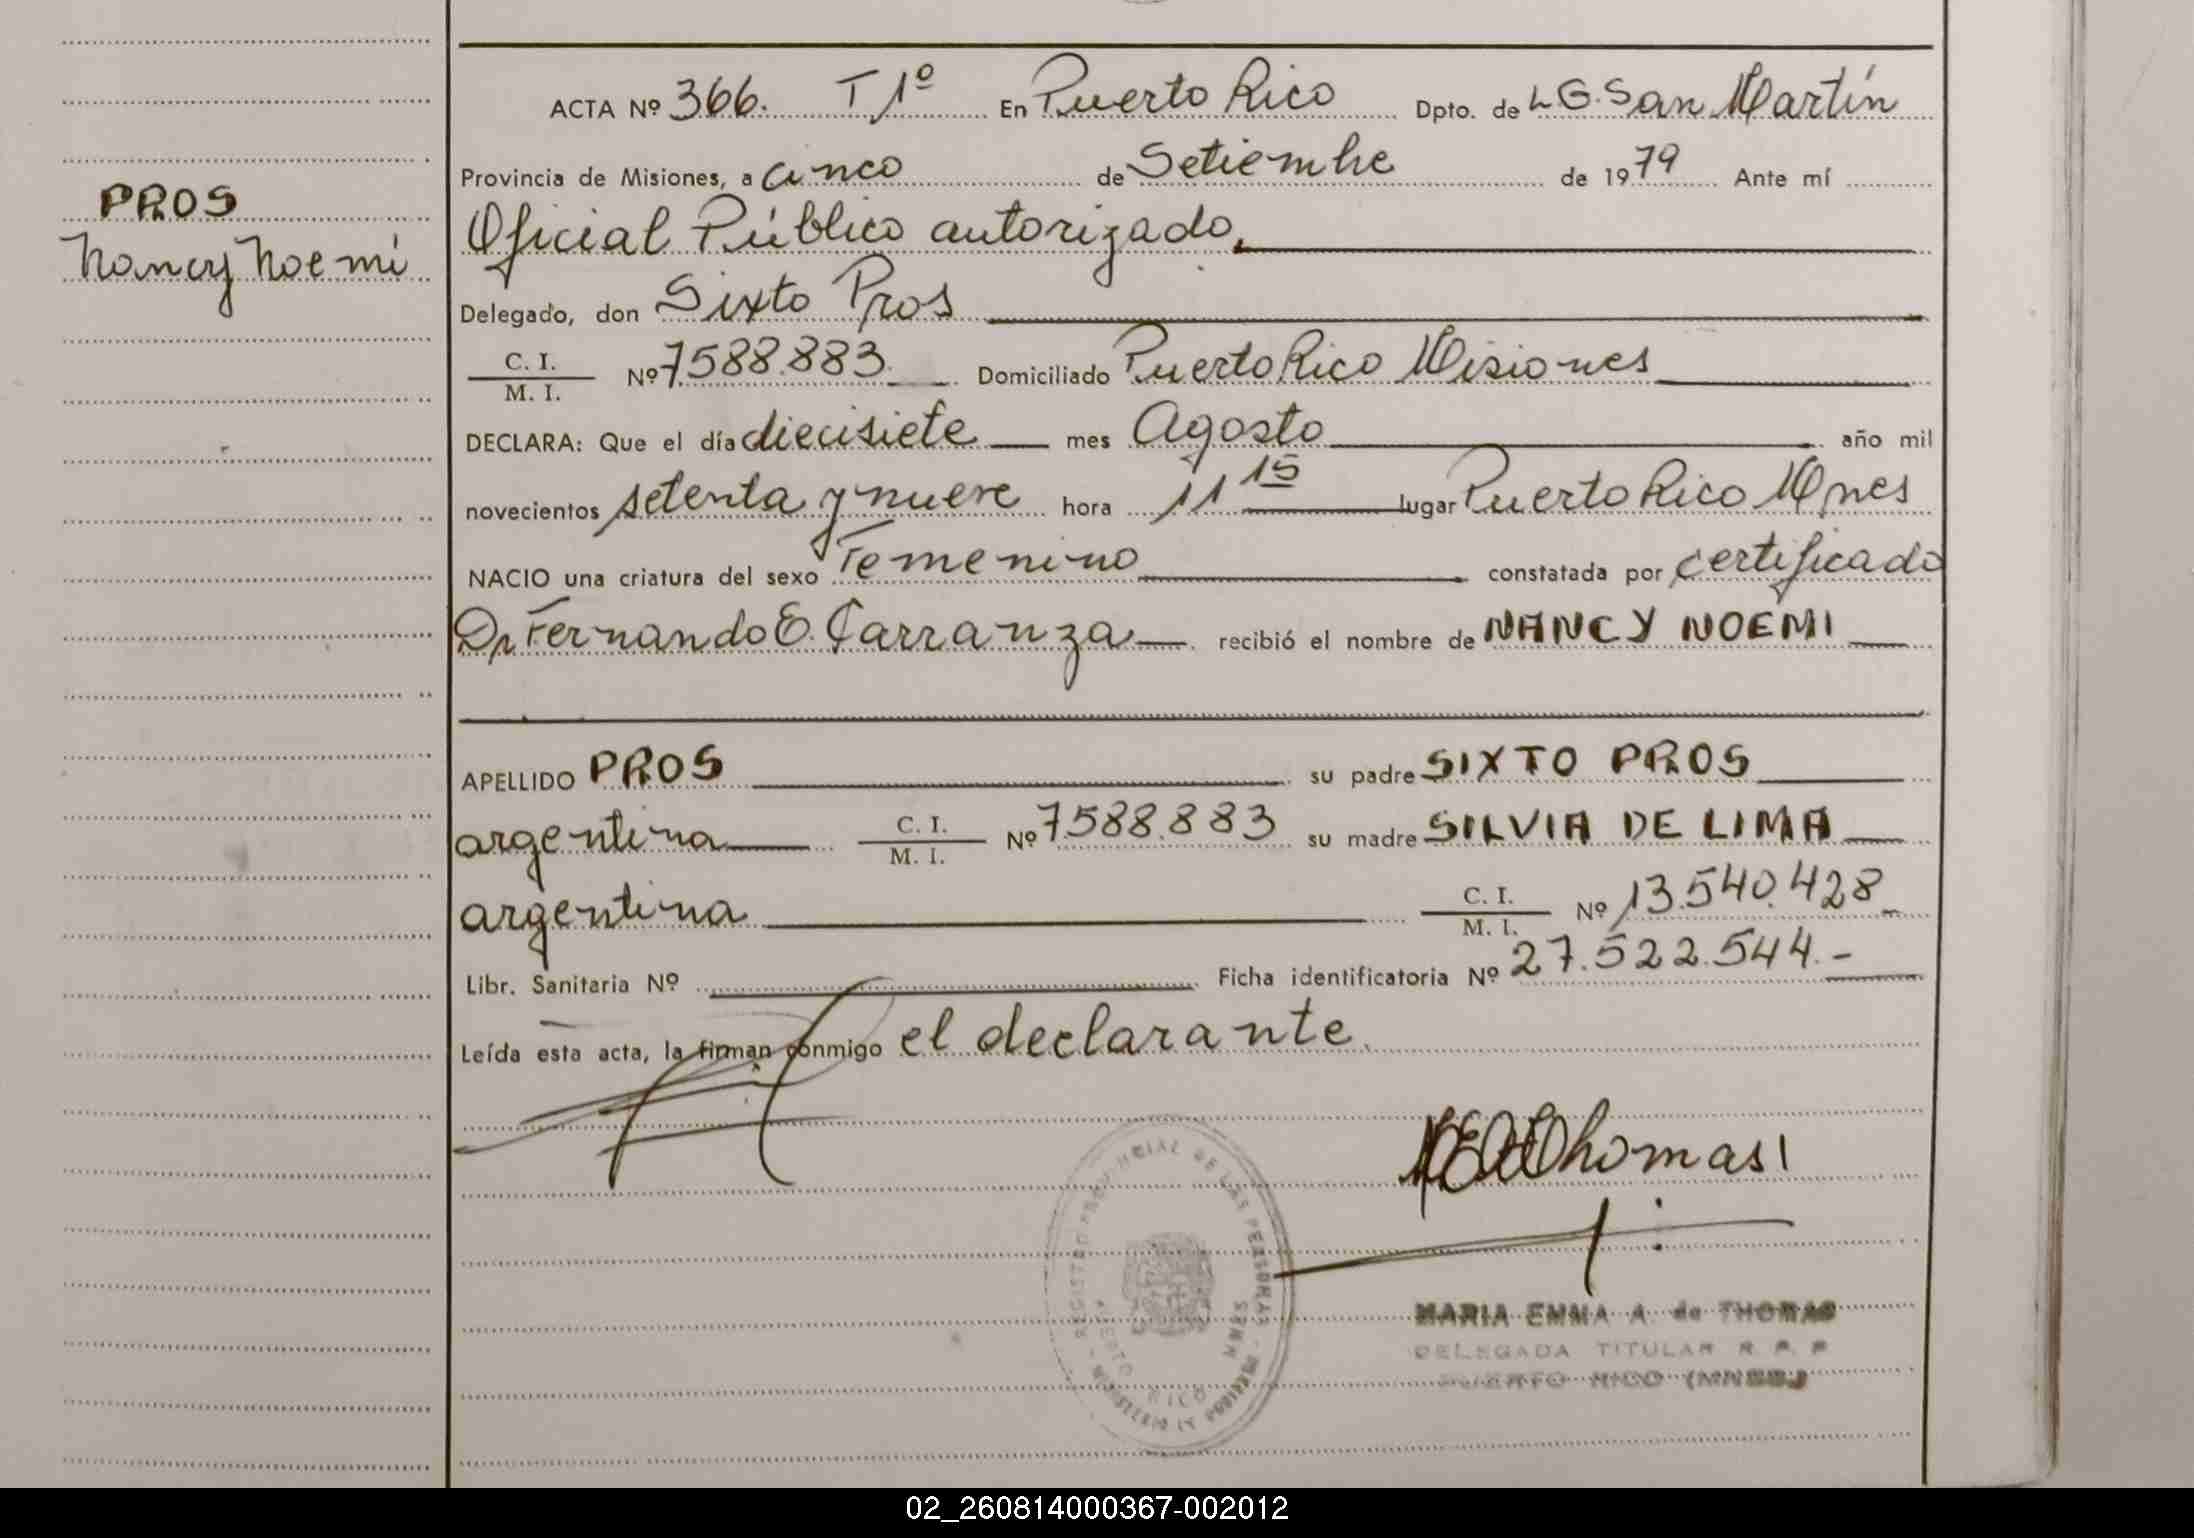 PROS
Nancy Noemi
ACTA Nº 366. T 1º En Puerto Rico Dpto. de L G. San Martín
Provincia de Misiones, a cinco de Setiembre de 1979 Ante mí
Oficial Público autorizado,
Delegado, don Sixto Pros
C. I.
M. I. Nº 7588.883. Domiciliado Puerto Rico Misiones
DECLARA: Que el día diecisiete mes Agosto año mil
novecientos setenta y nueve hora 11 15 lugar Puerto Rico Mnes
NACIO una criatura del sexo Femenino constatada por certificado
Dr Fernando E. Carranza recibió el nombre de NANCY NOEMI
APELLIDO PROS su padre SIXTO PROS
argentina C. I. M. I. Nº 7.588.883 su madre SILVIA DE LIMA
argentina C. I. M. I. Nº 13.540.428
Libr. Sanitaria Nº Ficha identificatoria Nº 27.522.544.-
Leída esta acta, la firman conmigo el declarante.
Thomas
REGISTRO PROVINCIAL DE LAS PERSONAS
MINISTERIO DE GOBIERNO
PUERTO RICO MNES
MARIA EMMA A. de THOMAS
DELEGADA TITULAR R. P. P
PUERTO RICO (MNES)
02_260814000367-002012